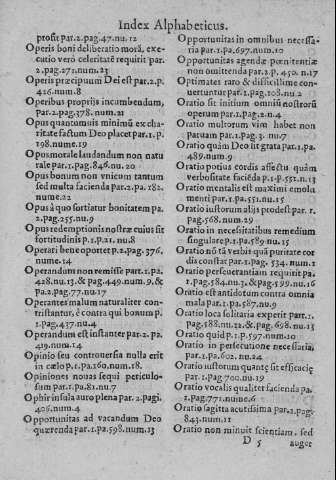 Index Alphabeticus.
profit par.2.pag.47.nu.12
Operis boni deliberatio morã, exe-
cutio verò celeritatẽ requirit par.
2.pag.271.num.23
Operis præcipuum Dei est par.2.p.
426.num.8
Operibus proprijs incumbendum,
par.2.pag.378.num.21
Opus quantcumuis minimũ ex cha-
ritate factum Deo placet par.1.p.
198.nume.19
Opus morale laudandum non natu
rale par.1.pag.846.nu.20
Opus bonum non vnicum tantum
sed multa facienda par.2.pa.182.
nume.22
Opus à quo sortiatur bonitatem pa.
2.pag.255.nu.9
Opus redemptionis nostræ cuius sit
fortitudinis p.1.p.21.nu.8
Operari bene oportet p.2.pag.376.
nume.14
Operandum non remisse par.1.pa.
428.nu.13.& pag.449.num.9.&
pa.2.pag.77.nu.17
Operantes malum naturaliter con-
tristantur, è contra qui bonum p.
1.pag.437.nu.4
Operandum est instanter par.2.pa.
419.num.14
Opinio seu controuersia nulla erit
in cælo p.1.pa.260.num.18.
Opiniones nouas sequi periculo-
sum par.1.pa.81.nu.7
Ophir insula auro plena par.2.pagi.
405.num.4
Opportunitas ad vacandum Deo
quærenda par.1.pa.598.num.13
Opportunitas in omnibus necessa-
ria par.1.pa.697.num.10
Opportunitas agendæ pœnitentiæ
non omittenda par.2.p.450.n.17
Optimates raro & difficillime con-
uertuntur par.1.pag.108.nu.2
Oratio sit initium omniũ nostrorũ
operum par.1.pag.2.n.4
Oratio multorum vim habet non
paruam par.1.pag.3.nu.7
Oratio quàm Deo sit grata par.1.pa.
489.num.9
Oratio potius cordis affectu quàm
verbositate faciẽda p.1.p.551.n.13
Oratio mentalis est maximi emolu
menti par.1.pa.551.nu.15
Oratio iustorum alijs prodest par.1.
pag.568.num.29
Oratio in necessitatibus remedium
singulare p.1.pa.589.nu.15
Oratio nõ tã verbis quã puritate cor
dis constat par.1.pag.534.num.1
Oratio perseuerantiam requirit pa.
1.pag.584.nu.3.& pag.599.nu.16
Oratio est antidotum contra omnia
mala par.1.pa.587.nu.9
Oratio loca solitaria experit par.1.
pag.188.nu.12.& pag.698.nu.13
Oratio quid p.1.p.597.num.10
Oratio in persecutione necessaria,
par.1.pa.602.nu.24
Oratio iustorum quantę sit efficacię
par.1.pag.700.nu.19
Oratio vocalis qualiter facienda pa.
1.pag.771.nume.6
Oratio sagitta acutissima par.2.pag.
843.num.11
Oratio non minuit scientiam, sed
D 5 auget